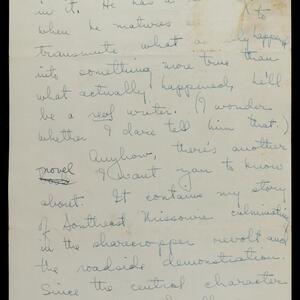 in it. He has a to
when he matures
transmute what happens
into something more true than
what actually happened, he'll
be a real writer. (I wonder
whether I dare tell him that.)
Anyhow, there's another
novel I want you to know
about. It contains my story
of Southeast Missouri culminating
in the sharecropper revolt and
the roadside demonstration.
Since the central character